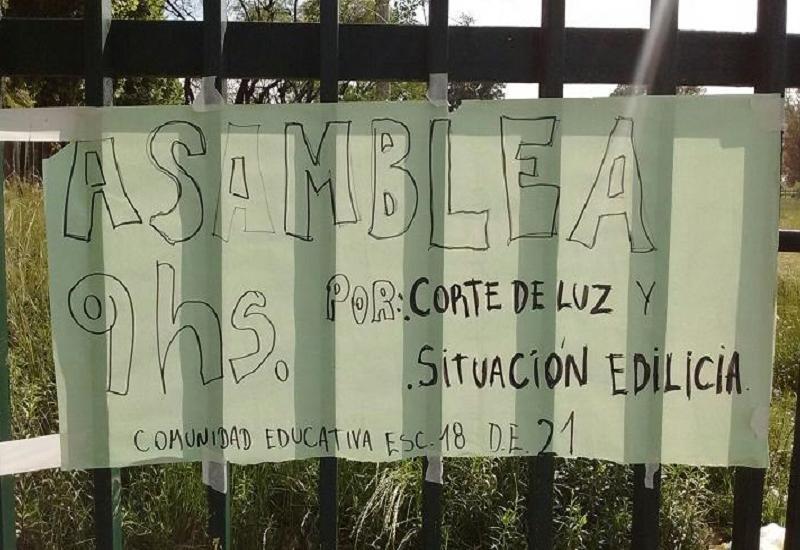 ASAMBLEA
9hs. POR: .CORTE DE LUZ Y
.SITUACIÓN EDILICIA.
COMUNIDAD EDUCATIVA ESC-18 D.E. 21